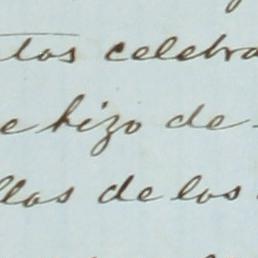 tos celebra
e hizo de-
llas de los